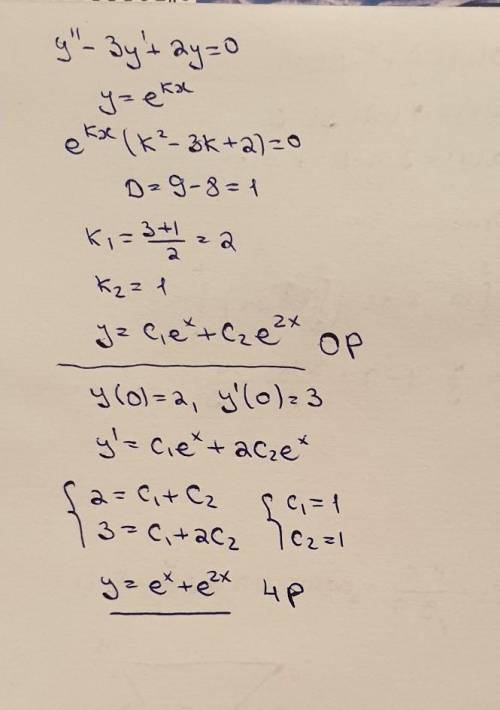 y'' - 3y' + 2y = 0
y = e^{kx}
e^{kx} (k² - 3k + 2) = 0
D = 9 - 8 = 1
k₁ = \frac{3+1}{2} = 2
k₂ = 1
y = C₁e^x + C₂e^{2x} ОР
y(0) = 2, y'(0) = 3
y' = C₁e^x + 2C₂e^x
{ 2 = C₁ + C₂ { C₁ = 1
3 = C₁ + 2C₂ C₂ = 1
y = e^x + e^{2x} ЧР